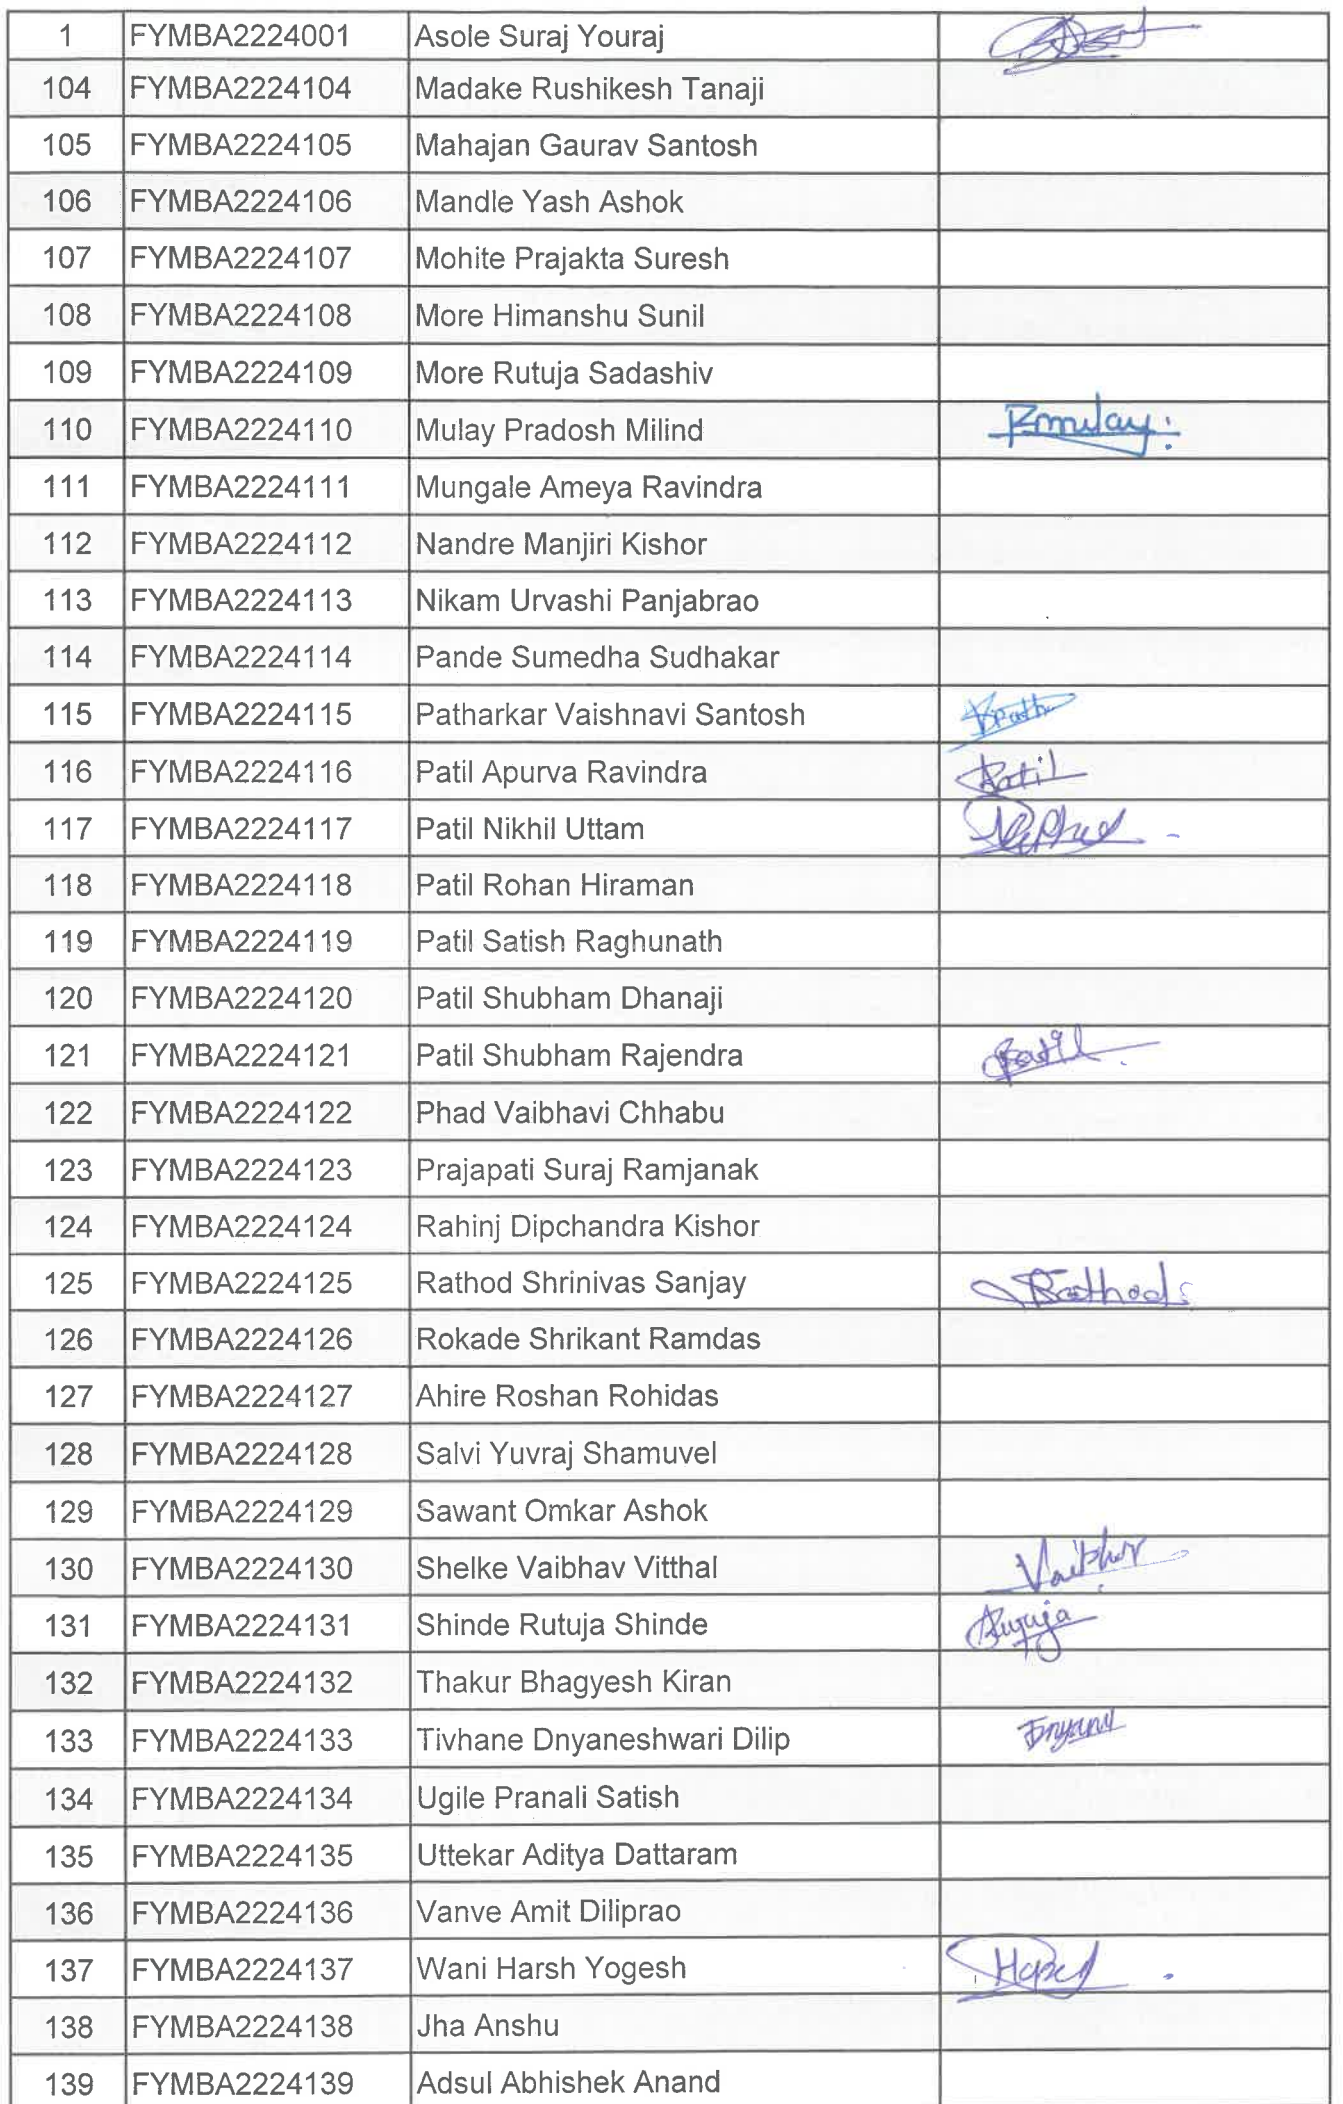 1 FYMBA2224001 Asole Suraj Youraj
104 FYMBA2224104 Madake Rushikesh Tanaji
105 FYMBA2224105 Mahajan Gaurav Santosh
106 FYMBA2224106 Mandle Yash Ashok
107 FYMBA2224107 Mohite Prajakta Suresh
108 FYMBA2224108 More Himanshu Sunil
109 FYMBA2224109 More Rutuja Sadashiv
110 FYMBA2224110 Mulay Pradosh Milind Pmulay
111 FYMBA2224111 Mungale Ameya Ravindra
112 FYMBA2224112 Nandre Manjiri Kishor
113 FYMBA2224113 Nikam Urvashi Panjabrao
114 FYMBA2224114 Pande Sumedha Sudhakar
115 FYMBA2224115 Patharkar Vaishnavi Santosh
116 FYMBA2224116 Patil Apurva Ravindra Patil
117 FYMBA2224117 Patil Nikhil Uttam
118 FYMBA2224118 Patil Rohan Hiraman
119 FYMBA2224119 Patil Satish Raghunath
120 FYMBA2224120 Patil Shubham Dhanaji
121 FYMBA2224121 Patil Shubham Rajendra Patil
122 FYMBA2224122 Phad Vaibhavi Chhabu
123 FYMBA2224123 Prajapati Suraj Ramjanak
124 FYMBA2224124 Rahinj Dipchandra Kishor
125 FYMBA2224125 Rathod Shrinivas Sanjay Rathod
126 FYMBA2224126 Rokade Shrikant Ramdas
127 FYMBA2224127 Ahire Roshan Rohidas
128 FYMBA2224128 Salvi Yuvraj Shamuvel
129 FYMBA2224129 Sawant Omkar Ashok
130 FYMBA2224130 Shelke Vaibhav Vitthal Vaibhav
131 FYMBA2224131 Shinde Rutuja Shinde Rutuja
132 FYMBA2224132 Thakur Bhagyesh Kiran
133 FYMBA2224133 Tivhane Dnyaneshwari Dilip
134 FYMBA2224134 Ugile Pranali Satish
135 FYMBA2224135 Uttekar Aditya Dattaram
136 FYMBA2224136 Vanve Amit Diliprao
137 FYMBA2224137 Wani Harsh Yogesh
138 FYMBA2224138 Jha Anshu
139 FYMBA2224139 Adsul Abhishek Anand